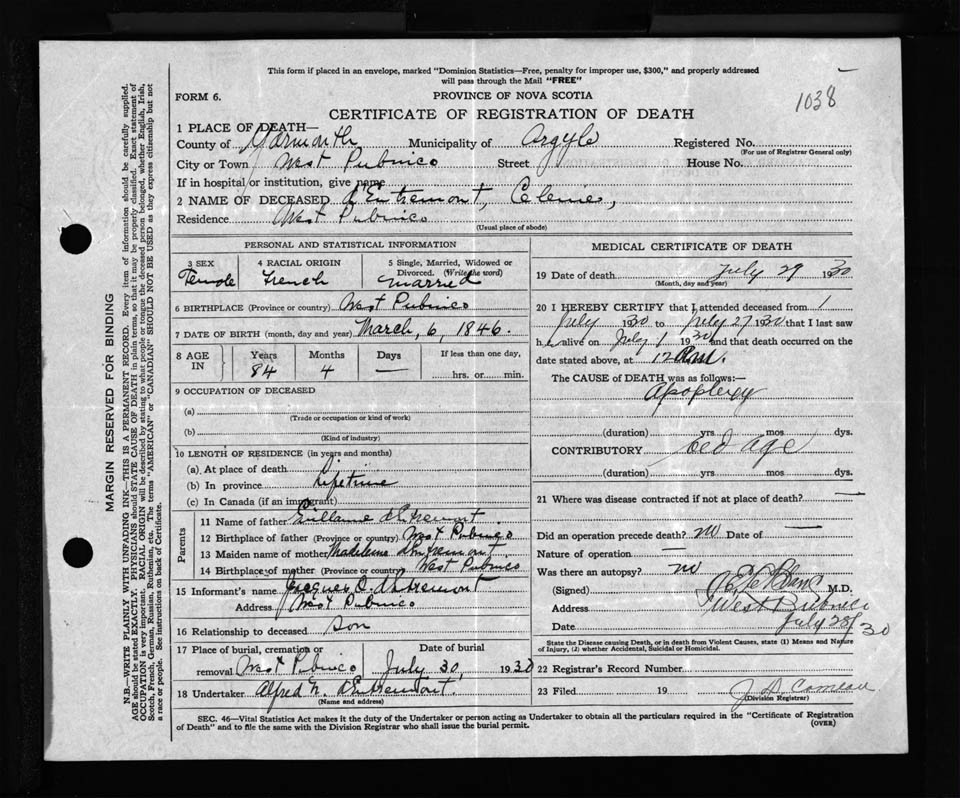 This form if placed in an envelope, marked "Dominion Statistics—Free, penalty for improper use, $300," and properly addressed
will pass through the Mail "FREE"
FORM 6.
PROVINCE OF NOVA SCOTIA
1038
CERTIFICATE OF REGISTRATION OF DEATH
1 PLACE OF DEATH—
County of Yarmouth Municipality of Argyle Registered No.
(For use of Registrar General only)
City or Town West Pubnico Street House No.
If in hospital or institution, give name
2 NAME OF DECEASED d'Entremont,
Residence West Pubnico
(Usual place of abode)
PERSONAL AND STATISTICAL INFORMATION
3 SEX 4 RACIAL ORIGIN 5 Single, Married, Widowed or
Divorced. (Write the word)
Female French married
6 BIRTHPLACE (Province or country) West Pubnico
7 DATE OF BIRTH (month, day and year) March, 6, 1846.
8 AGE IN Years Months Days If less than one day,
84 4 — hrs. or min.
9 OCCUPATION OF DECEASED
(a)
(Trade or occupation or kind of work)
(b)
(Kind of industry)
10 LENGTH OF RESIDENCE (in years and months)
(a) At place of death
(b) In province Lifetime
(c) In Canada (if an immigrant)
Parents
11 Name of father d'Entremont
12 Birthplace of father (Province or country) West Pubnico
13 Maiden name of mother Madeleine d'Entremont
14 Birthplace of mother (Province or country) West Pubnico
15 Informant's name Jacques C. d'Entremont
Address West Pubnico
16 Relationship to deceased Son
17 Place of burial, cremation or Date of burial
removal West Pubnico July 30, 1930
18 Undertaker Alfred N. d'Entremont.
(Name and address)
MEDICAL CERTIFICATE OF DEATH
19 Date of death July 29 1930
(Month, day and year)
20 I HEREBY CERTIFY that I attended deceased from 1
July 1930 to July 27 1930 that I last saw
h alive on July 1 1930 and that death occurred on the
date stated above, at 12 m.
The CAUSE OF DEATH was as follows:—
Apoplexy
(duration) yrs mos dys.
CONTRIBUTORY old age
(duration) yrs. mos. dys.
21 Where was disease contracted if not at place of death? —
Did an operation precede death? no Date of —
Nature of operation —
Was there an autopsy? no
(Signed) M.D.
Address West Pubnico
Date July 28/30
State the Disease causing Death, or in death from Violent Causes, state (1) Means and Nature
of Injury, (2) whether Accidental, Suicidal or Homicidal.
22 Registrar's Record Number
23 Filed 19 Comeau
(Division Registrar)
SEC. 46—Vital Statistics Act makes it the duty of the Undertaker or person acting as Undertaker to obtain all the particulars required in the "Certificate of Registration
of Death" and to file the same with the Division Registrar who shall issue the burial permit.
(OVER)
MARGIN RESERVED FOR BINDING
N.B.—WRITE PLAINLY WITH UNFADING INK—THIS IS A PERMANENT RECORD. Every item of information should be carefully supplied.
AGE should be stated EXACTLY. PHYSICIANS should STATE CAUSE OF DEATH in plain terms, so that it may be properly classified. Exact statement of
OCCUPATION is very important. RACIAL ORIGIN will be described by stating to what people or tongue the deceased person belonged, whether English, Irish,
Scotch, French, German, Russian, Ruthenian, etc. The terms "AMERICAN" or "CANADIAN" SHOULD NOT BE USED as they express citizenship but not
a race or people. See instructions on back of Certificate.